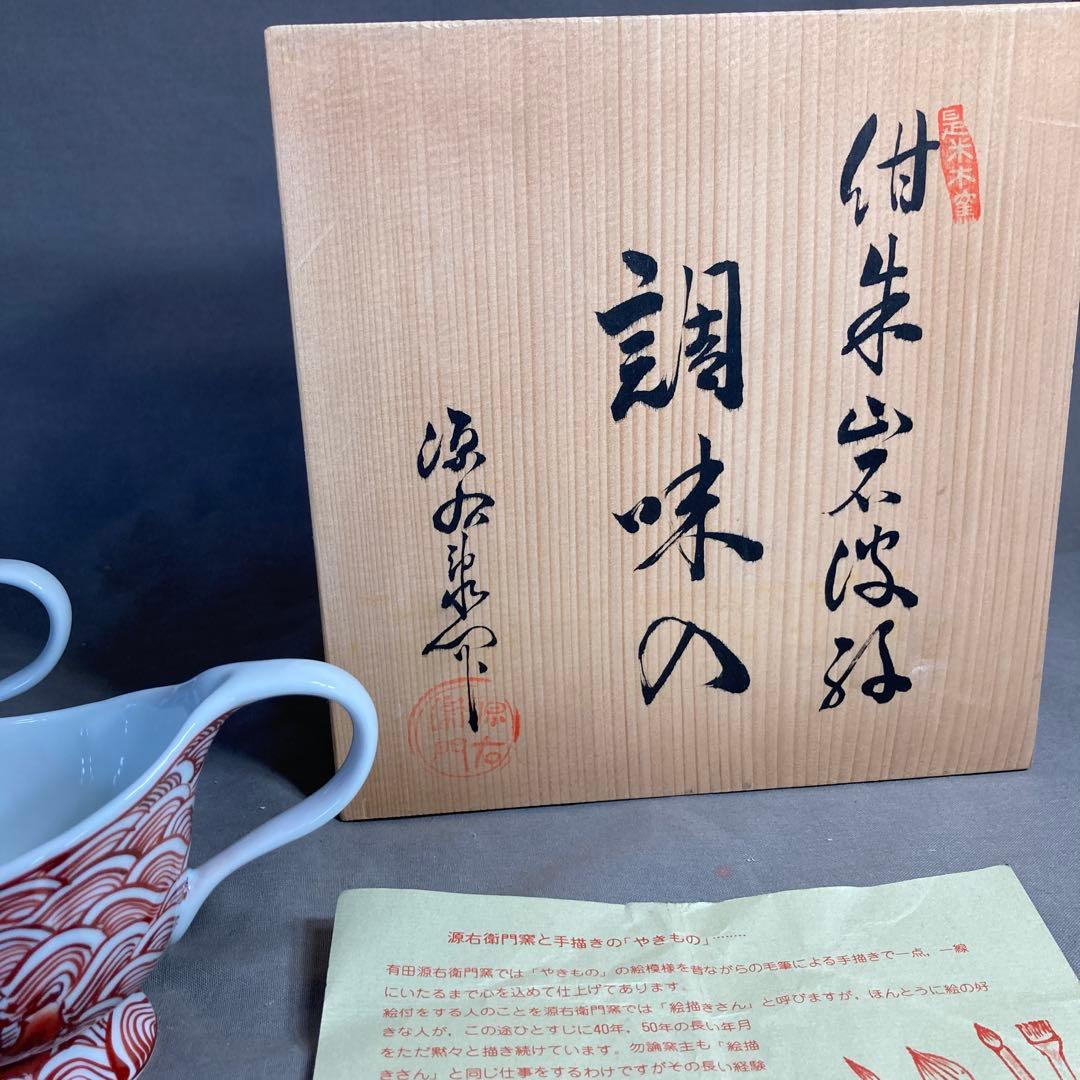 紺朱岩波絵
調味入
源右衛門作
源右衛門窯と手描きの「やきもの」………
有田源右衛門窯では「やきもの」の絵模様を昔ながらの毛筆による手描きで一点，一線
にいたるまで心を込めて仕上げてあります。
絵付をする人のことを源右衛門窯では「絵描きさん」と呼びますが，ほんとうに絵の好
きな人が，この途ひとすじに40年，50年の長い年月
をただ黙々と描き続けています。勿論窯主も「絵描
きさん」と同じ仕事をするわけですがその長い経験